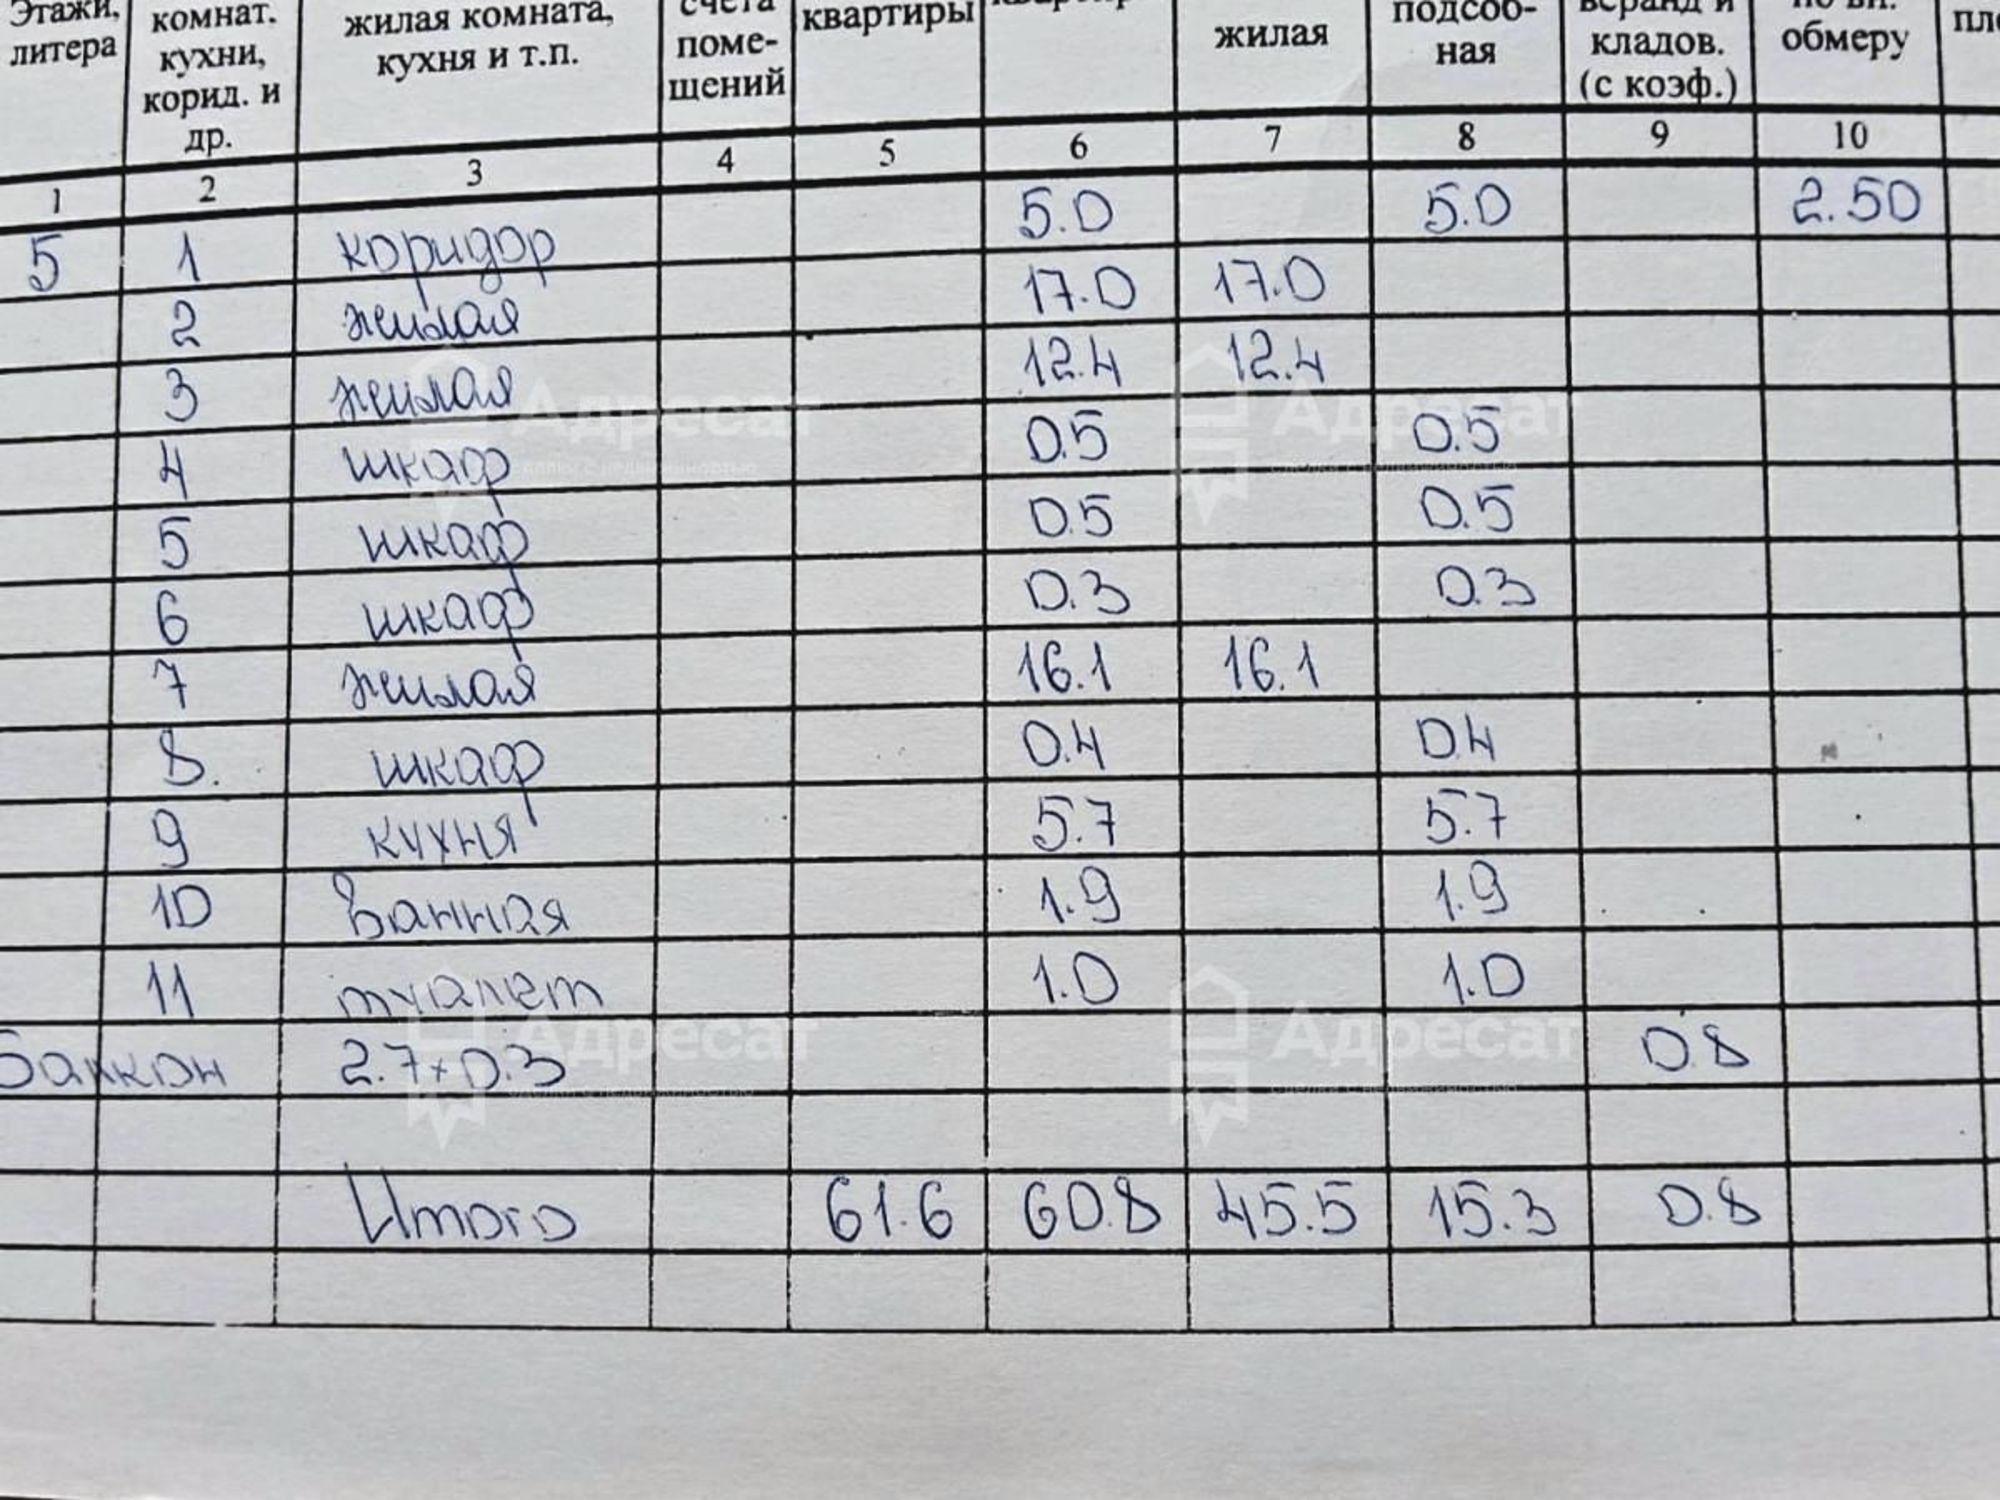 Этажи, литера
комнат. кухни, корид. и др.
жилая комната, кухня и т.п.
счета поме-щений
квартиры
жилая
подсоб-ная
веранд и кладов. (с коэф.)
по вн. обмеру
1 2 3 4 5 6 7 8 9 10
5 1 коридор 5.0 5.0 2.50
2 жилая 17.0 17.0
3 жилая 12.4 12.4
4 шкаф 0.5 0.5
5 шкаф 0.5 0.5
6 шкаф 0.3 0.3
7 жилая 16.1 16.1
8. шкаф 0.4 0.4
9 кухня 5.7 5.7
10 ванная 1.9 1.9
11 туалет 1.0 1.0
балкон 2.7×0.3 0.8
Итого 61.6 60.8 45.5 15.3 0.8
Адресат
сделки с недвижимостью
Адресат
сделки с недвижимостью
Адресат
сделки с недвижимостью
Адресат
сделки с недвижимостью